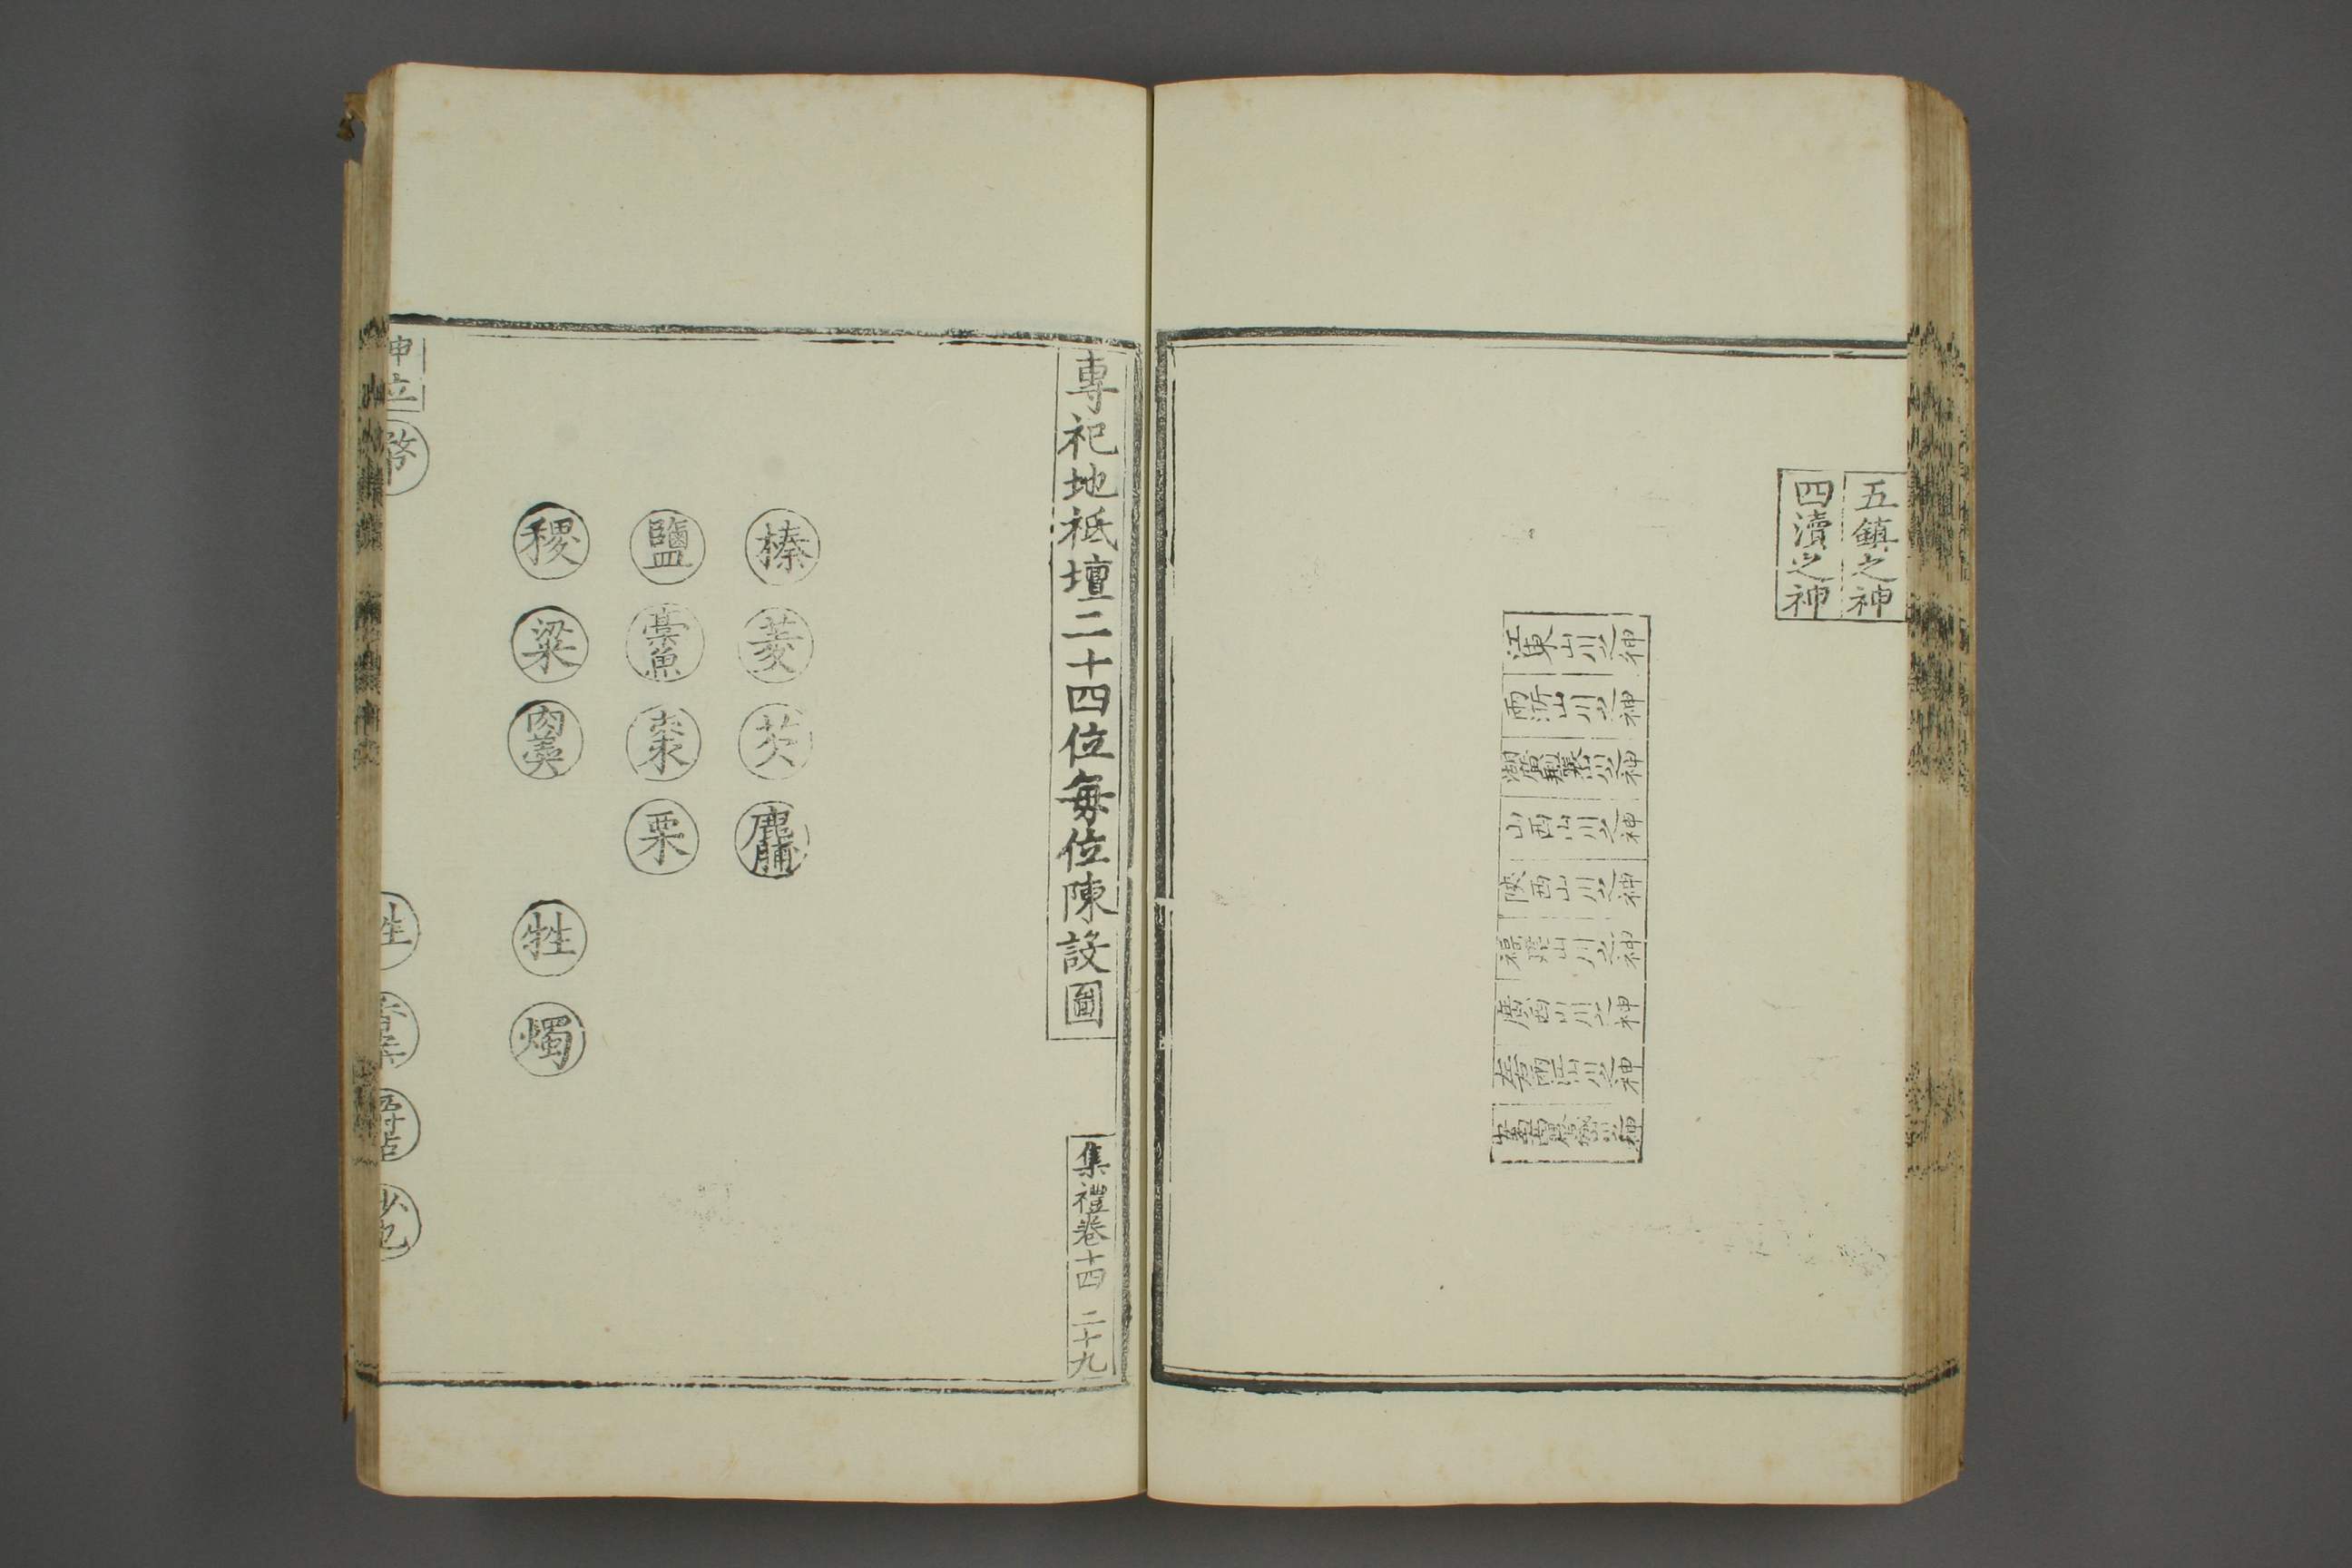 五鎮之神
四瀆之神
江東山川之神
兩浙山川之神
湖廣荊襄山川之神
山西山川之神
陝西山川之神
福建山川之神
廣西山川之神
左右兩江山川之神
山川之神
專祀地祇壇二十四位每位陳設圖
集禮卷十四 二十九
榛
菱
芡
鹿脯
鹽
藁魚
棗
栗
稷
粱
肉羹
牲
燭